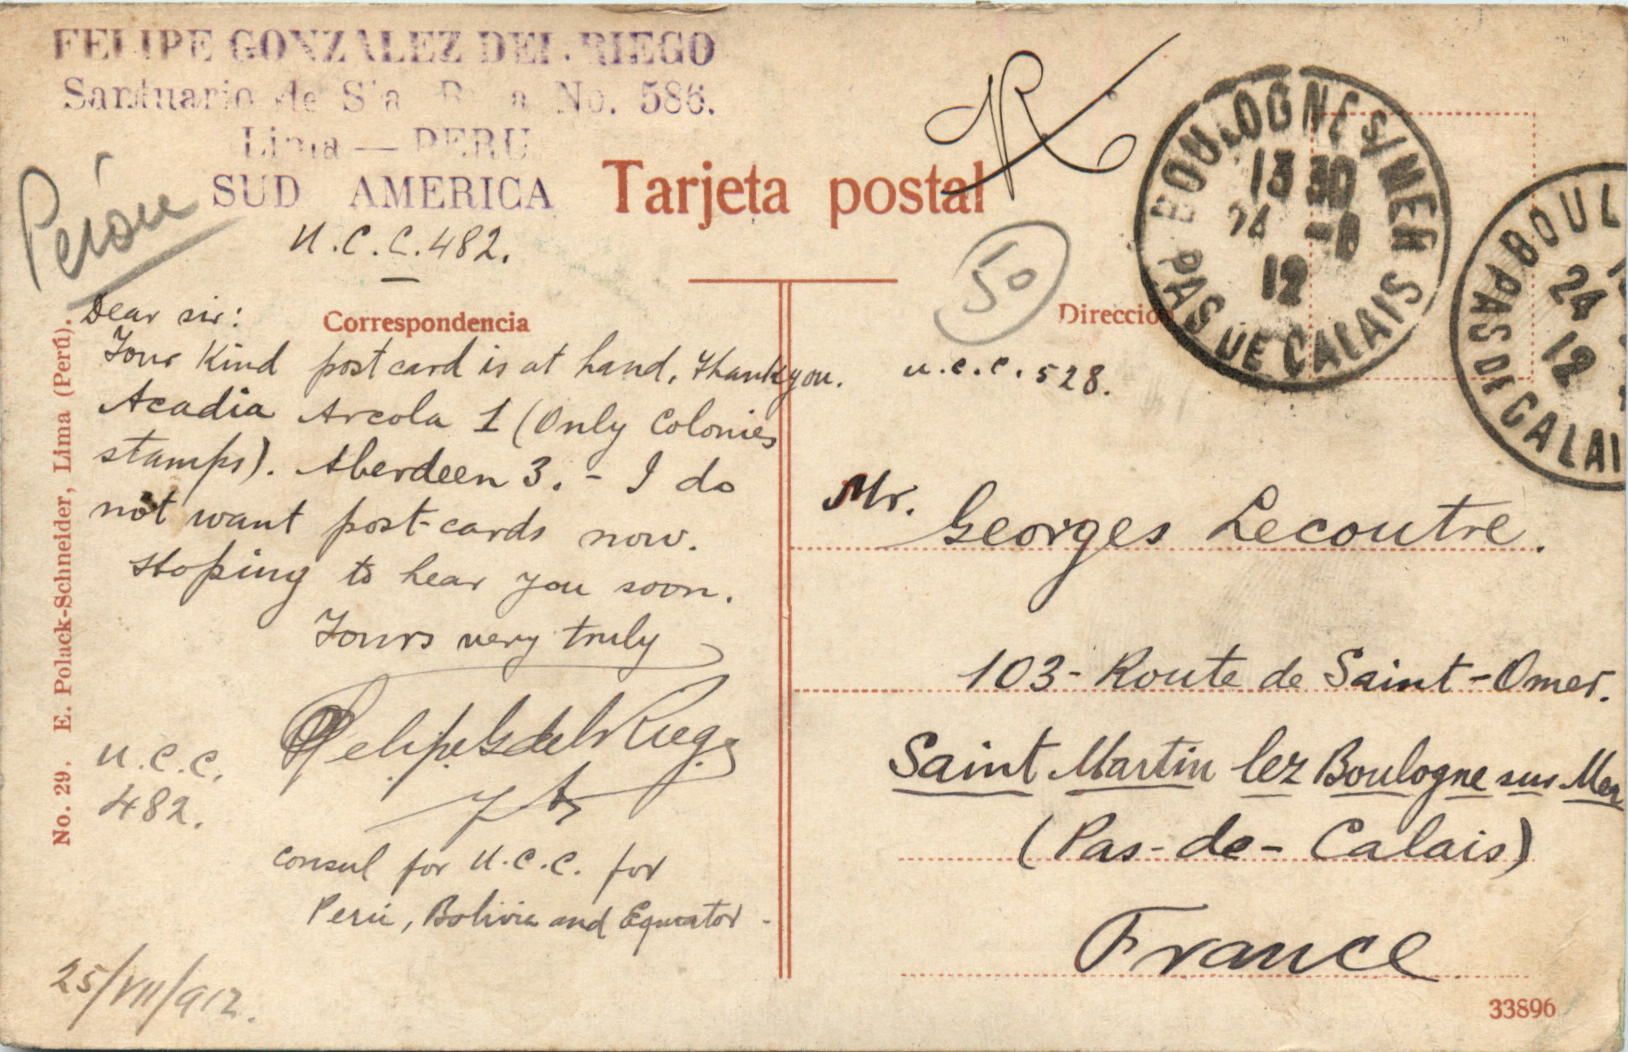 FELIPE GONZALEZ DEL RIEGO
Santuario de Sta Rosa No. 586.
Lima — PERU
SUD AMERICA
U.C.C. 482.
Perou
Tarjeta postal
R
50
BOULOGNE S/MER
13 30
24 -8
12
PAS DE CALAIS
BOUL
24
12
PAS DE CALAI
Correspondencia
Dirección
Dear sir:
Your Kind postcard is at hand, thank you.
Acadia Arcola 1 (Only Colonies
stamps). Aberdeen 3. - I do
not want post-cards now.
Hoping to hear you soon.
Yours very truly
Felipe G del Riego
U.C.C.
482.
Consul for U.C.C. for
Perú, Bolivia and Equator -
25/VII/912.
u.c.c. 528.
Mr. Georges Lecoutre.
103 - Route de Saint-Omer.
Saint Martin lez Boulogne sur Mer
(Pas-de-Calais)
France
No. 29. E. Polack-Schneider, Lima (Perú).
33896